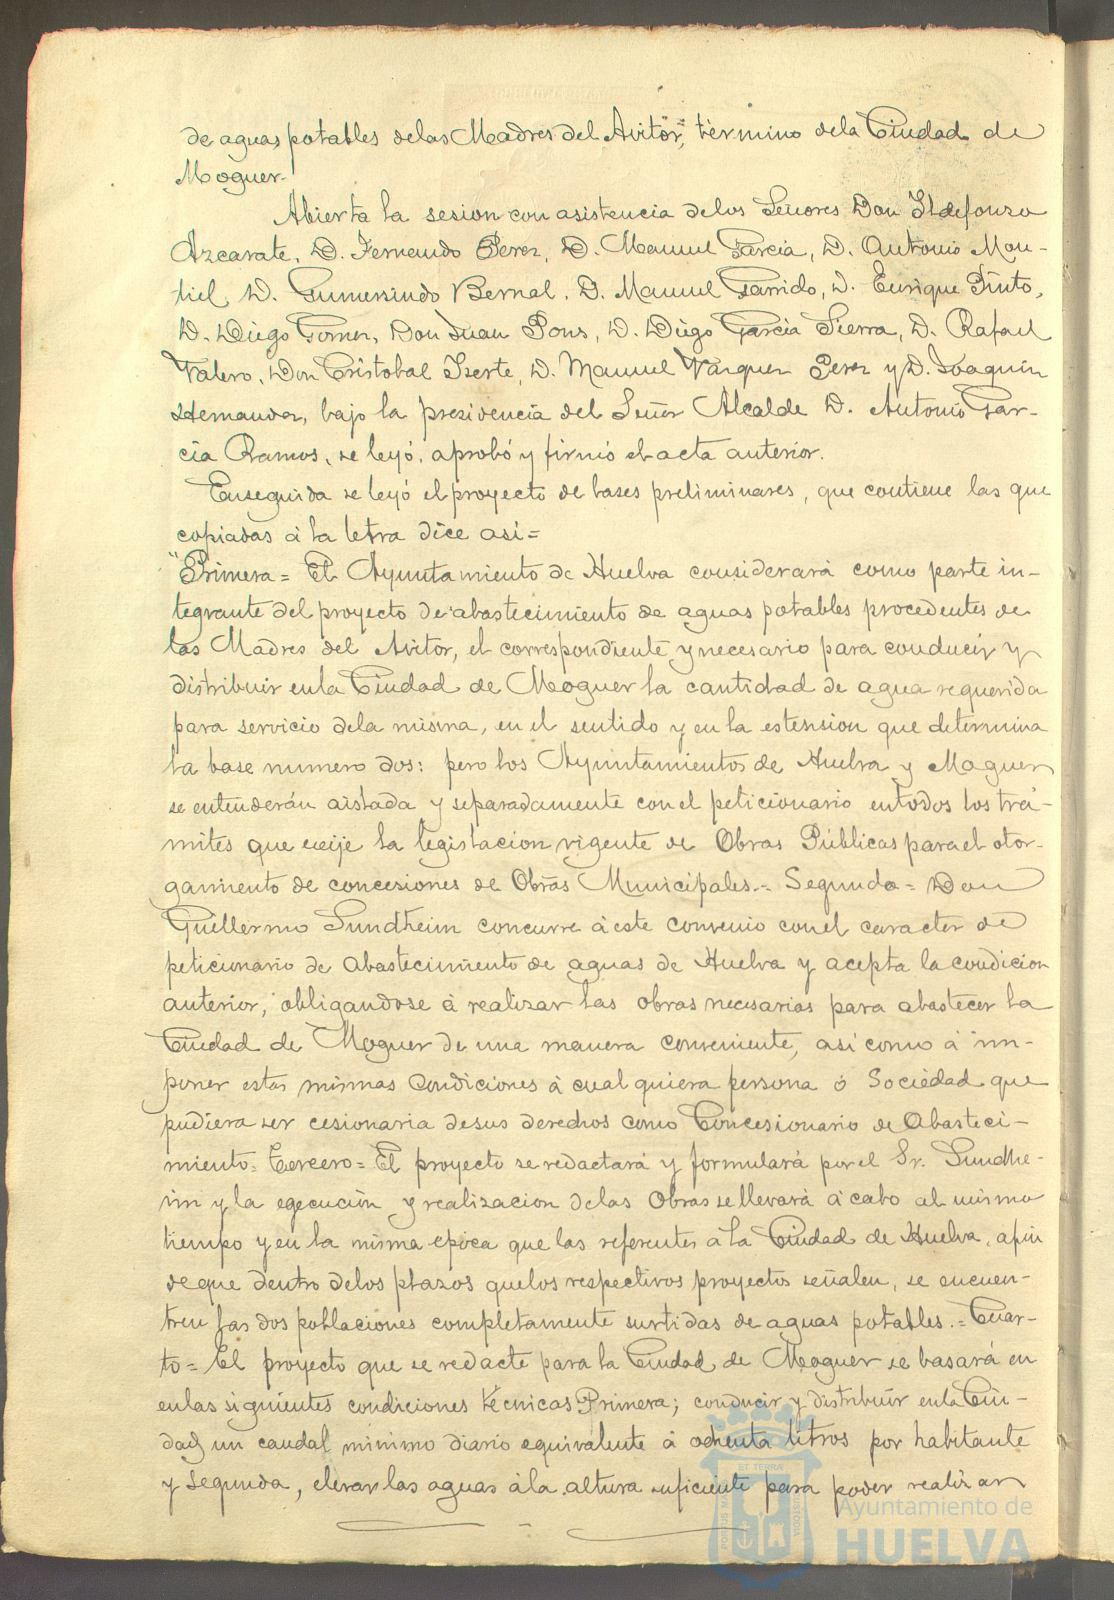 de aguas potables delas Madres del Avitor", término dela Ciudad de
Moguer.
Abierta la sesion con asistencia delos Señores Don Ildefonso
Azcarate, D. Fernando Perez, D. Manuel Garcia, D. Antonio Mon-
tiel, D. Gumersindo Bernal, D. Manuel Garrido, D. Enrique Pinto,
D. Diego Gomez, Don Juan Pons, D. Diego Garcia Sierra, D. Rafael
Valero, Don Cristobal Iserte, D. Manuel Vazquez Perez y D. Joaquin
Hernandez, bajo la presidencia del Señor Alcalde D. Antonio Gar-
cia Ramos, se leyó, aprobó y firmó el acta anterior.
Enseguida se leyó el proyecto de bases preliminares, que contiene las que
copiadas á la letra dice asi=
"Primera= El Ayuntamiento de Huelva considerará como parte in-
tegrante del proyecto de abastecimiento de aguas potables procedentes de
las Madres del Avitor, el correspondiente y necesario para conducir y
distribuir en la Ciudad de Moguer la cantidad de agua requerida
para servicio dela misma, en el sentido y en la estension que determina
la base numero dos: pero los Ayuntamientos de Huelva y Moguer
se entenderán aislada y separadamente con el peticionario en todos los trá-
mites que exije la legislacion vigente de Obras Públicas para el otor-
gamiento de concesiones de Obras Municipales.= Segunda= Don
Guillermo Sundheim concurre á este convenio con el caracter de
peticionario de abastecimiento de aguas de Huelva y acepta la condicion
anterior, obligandose á realizar las obras necesarias para abastecer la
Ciudad de Moguer de una manera conveniente, asi como á im-
poner estas mismas condiciones á cual quiera persona ó Sociedad que
pudiera ser cesionaria de sus derechos como Concesionario de Abasteci-
miento= Tercero= El proyecto se redactará y formulará por el Sr. Sundhe-
im y la egecución y realizacion delas Obras se llevará á cabo al mismo
tiempo y en la misma epoca que las referentes á la Ciudad de Huelva, afin
de que dentro delos plazos quelos respectivos proyectos señalen, se encuen-
tren las dos poblaciones completamente surtidas de aguas potables.= Cuar-
to= El proyecto que se redacte para la Ciudad de Moguer se basará en
en las siguientes condiciones técnicas Primera; conducir y distribuir en la Ciu-
dad un caudal minimo diario equivalente á ochenta litros por habitante
y segunda, elevar las aguas á la altura suficiente para poder realizar
Ayuntamiento de
HUELVA